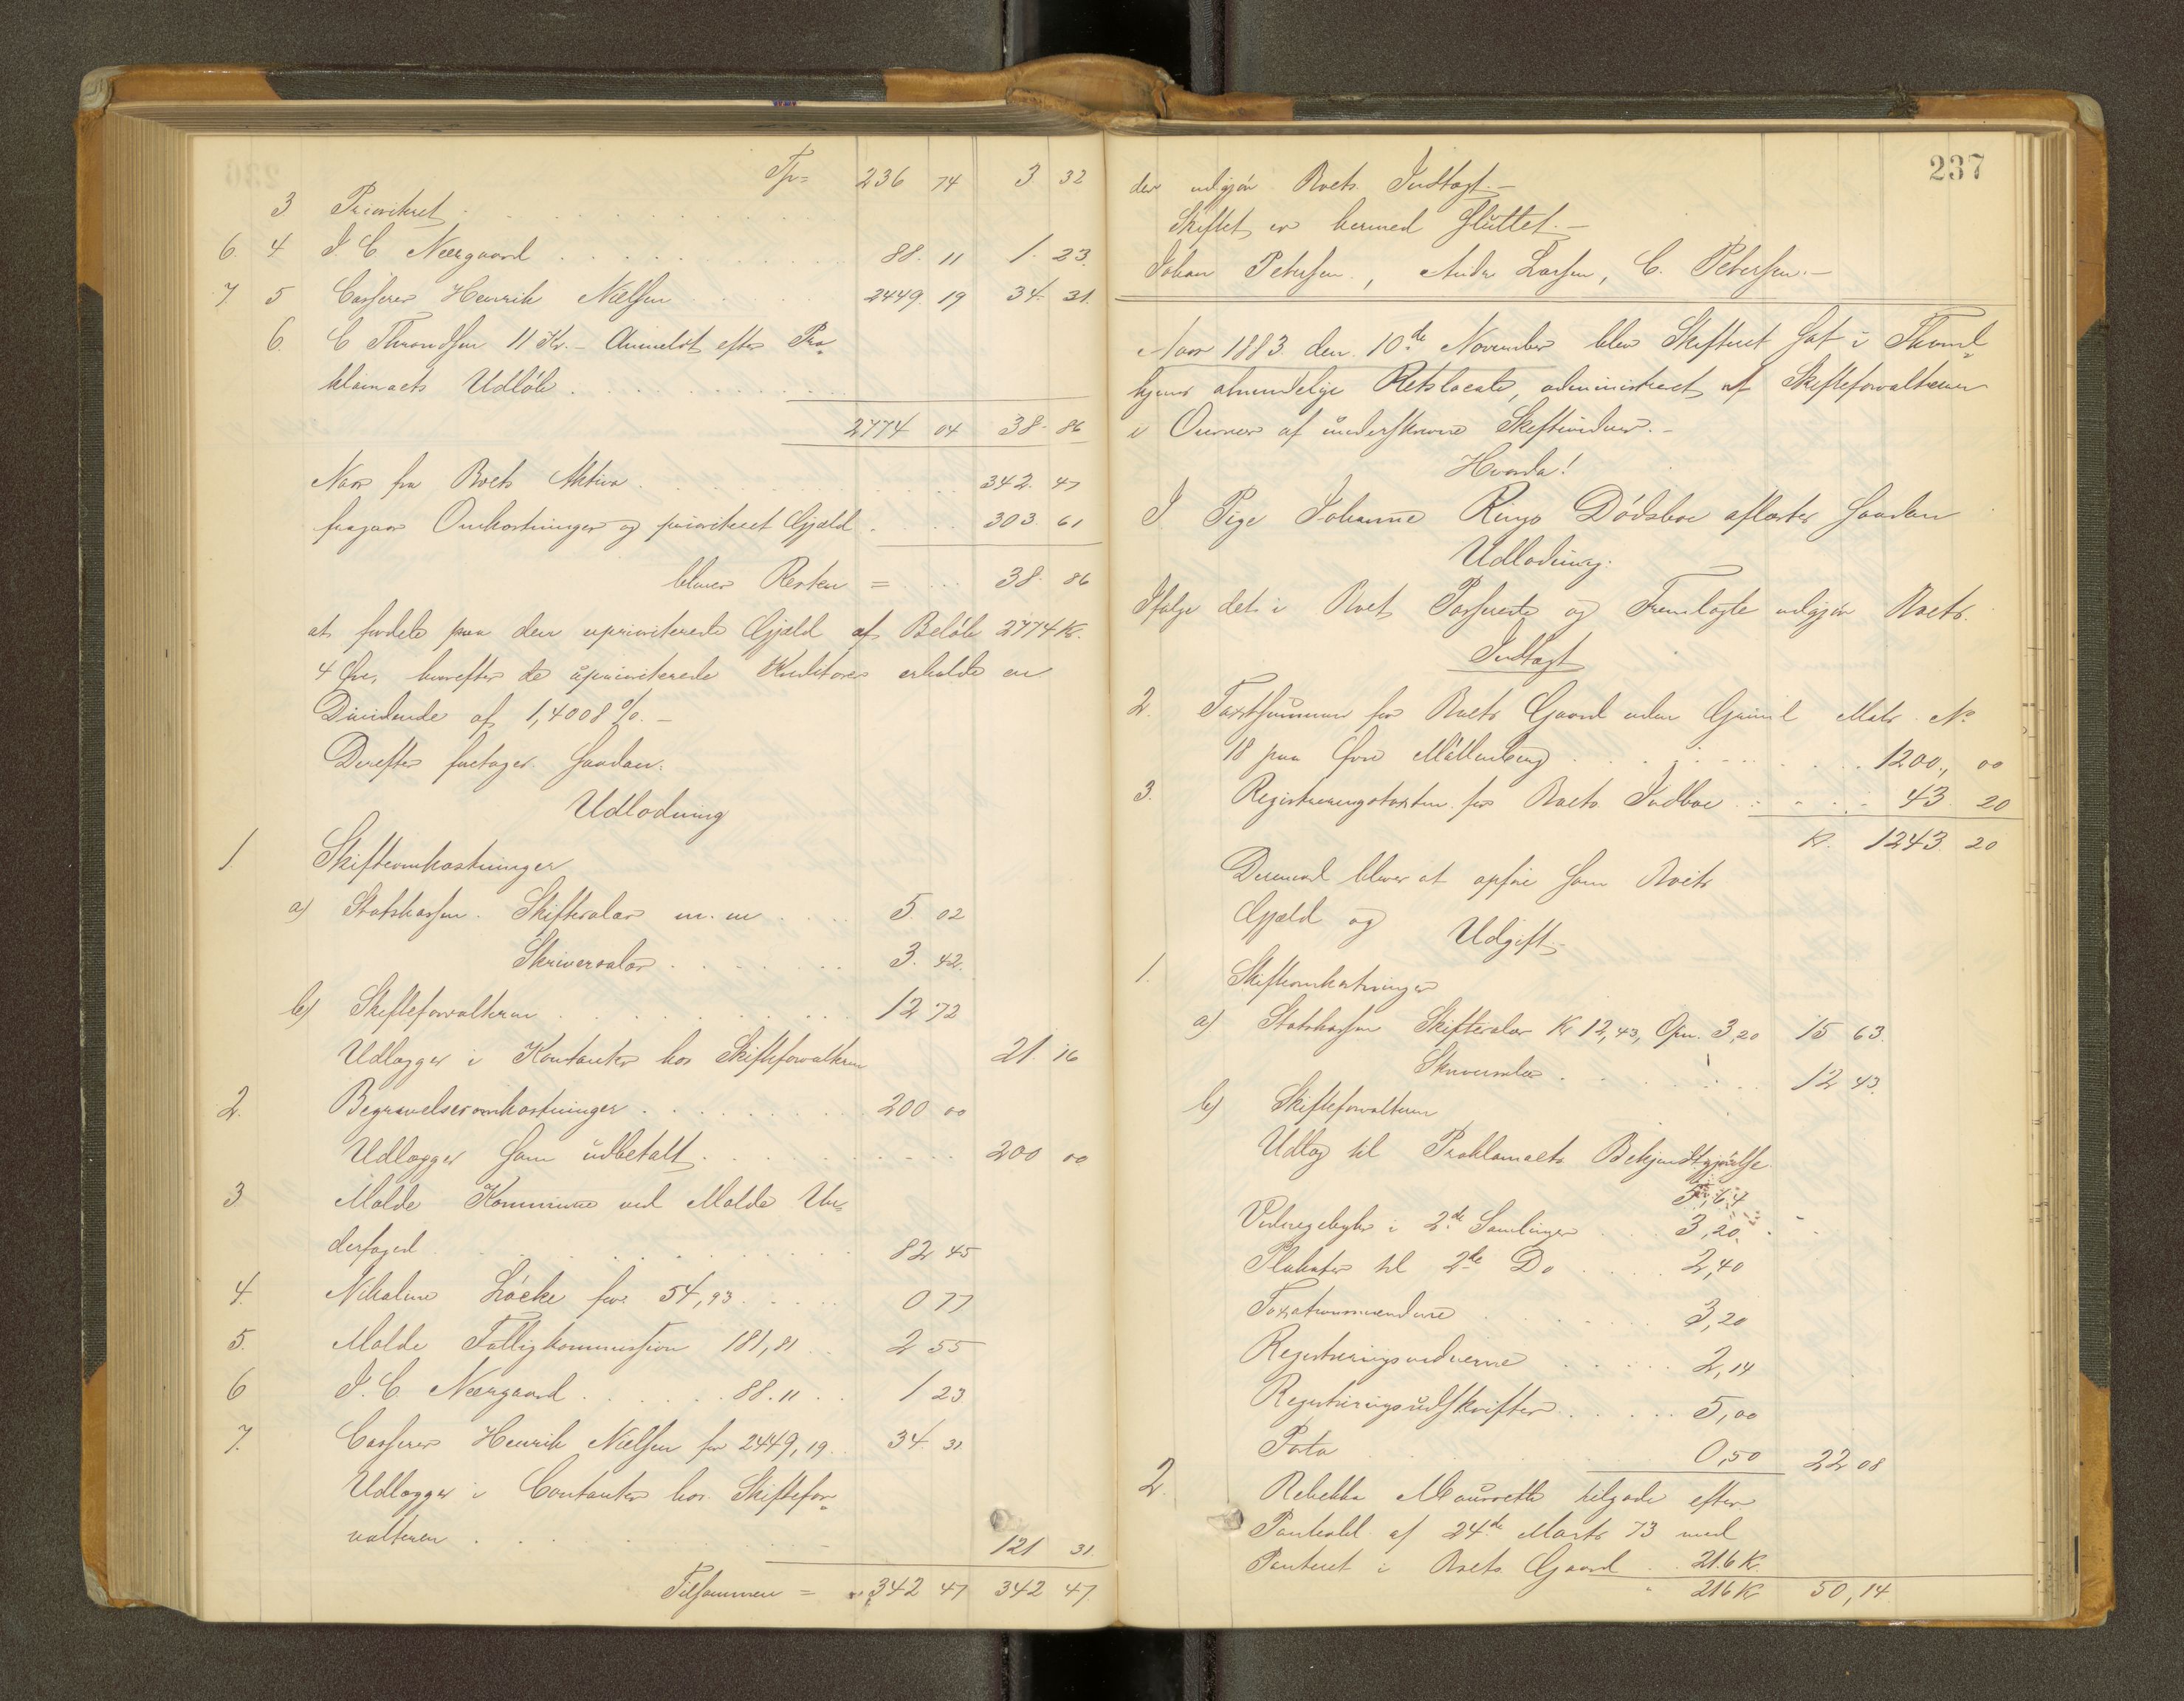 Tpr= 236 74 3 32
3 Prioriteret
6. 4 I. C. Neergaard 88. 11 1. 23.
7 5 Casserer Henrik Nielsen 2449. 19 34. 31.
6. C Throndsen 11 Kr. - Anmeldt efter Pro-
klamaets Udløb
2774 04 38. 86
Naar fra Boets Aktiva 342. 47
fragaar Omkostninger og prioriteret Gjæld 303. 61
bliver Resten = 38. 86
at fordele paa den uprioriterede Gjæld af Beløb 2774 Kr.
4 Øre, hvorefter de uprioriterede Kreditorer erholde en
Dividende af 1,4008 %. -
Derefter foretages saadan:
Udlodning
1 Skifteomkostninger
a) Statskassen. Skiftesalær m. m 5. 02
Skriversalær 3. 42.
b) Skifteforvalteren 12 72
Udlægges i Kontanter hos Skifteforvalteren 21. 16
2. Begravelsesomkostninger 200 00
Udlægges som udbetalt 200 00
3 Molde Kommune ved Molde Un-
derfoged 82 45
4. Nikoline Løcke for 54,93 0 77
5. Molde Fattigkommission 181,81 2 55
6 I. C. Neergaard 88. 11 1 23
7. Casserer Henrik Nielsen for 2449,19 34 31
Udlægges i Contanter hos Skiftefor-
valteren 121 31.
Tilsammen = 342 47 342 47
237
der udgjør Boets Indtægt. -
Skiftet er hermed sluttet. -
Johan Petersen., Andr Larsen, C. Petersen. -
Aar 1883 den 10de November blev Skifteret sat i Thrond-
hjems almindelige Retslocale, administreret af Skifteforvalteren
i Overvær af underskrevne Skiftevidner. -
Hvorda!
I Pige Johanne Rings Dødsboe afsluttes saadan
Udlodning.
Ifølge det i Boet Passerede og Fremlagte udgjør Boets
Indtægt
2. Taxtsummen for Boets Gaard uden Grund Matr. No
18 paa Øvre Møllenberg 1200., 00
3. Registreringstaxten for Boets Indboe 43. 20
Kr. 1243. 20
Derimod bliver at opføre som Boets
Gjæld og Udgift -
1. Skifteomkostninger
a) Statskassen Skiftesalær Kr 12,43, Opn. 3,20 15 63.
Skriversalær 12 43.
b) Skifteforvalteren
Udlæg til Proklamaets Bekjendtgjørelse
5,64
Vidnegebyhr i 2de Samlinger 3,20.
Plakater til 2de Do 2,40
Taxationsmændene 3,20
Registreringsvidnerne 2,14
Registreringsudskrifter 5,00
Porto 0,50 22 08
2. Rebekka tilgode efter
Panteobl. af 24de Marts 73 med
Panteret i Boets Gaard 216 Kr
216 Kr 50,14